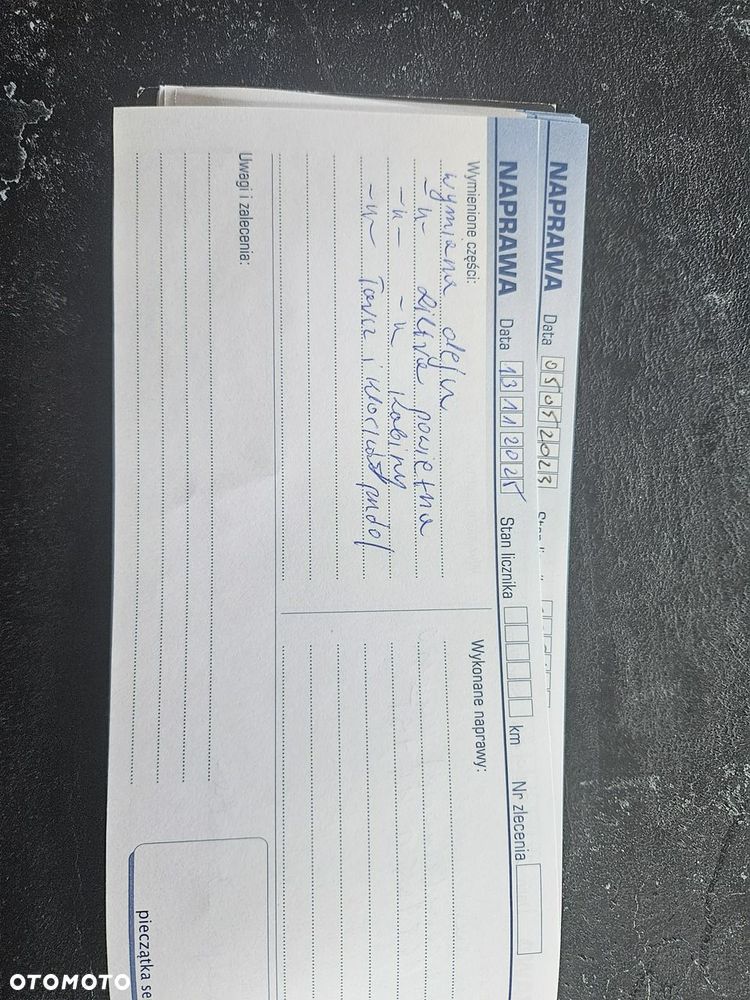 NAPRAWA Data 05052023
NAPRAWA Data 13112025 Stan licznika km Nr zlecenia
Wymienione części:
wymiana oleju
-u- filtra powietrza
-u- -u kabiny
-u- Tarcz i klocków przód
Wykonane naprawy:
Uwagi i zalecenia:
pieczątka se
OTOMOTO